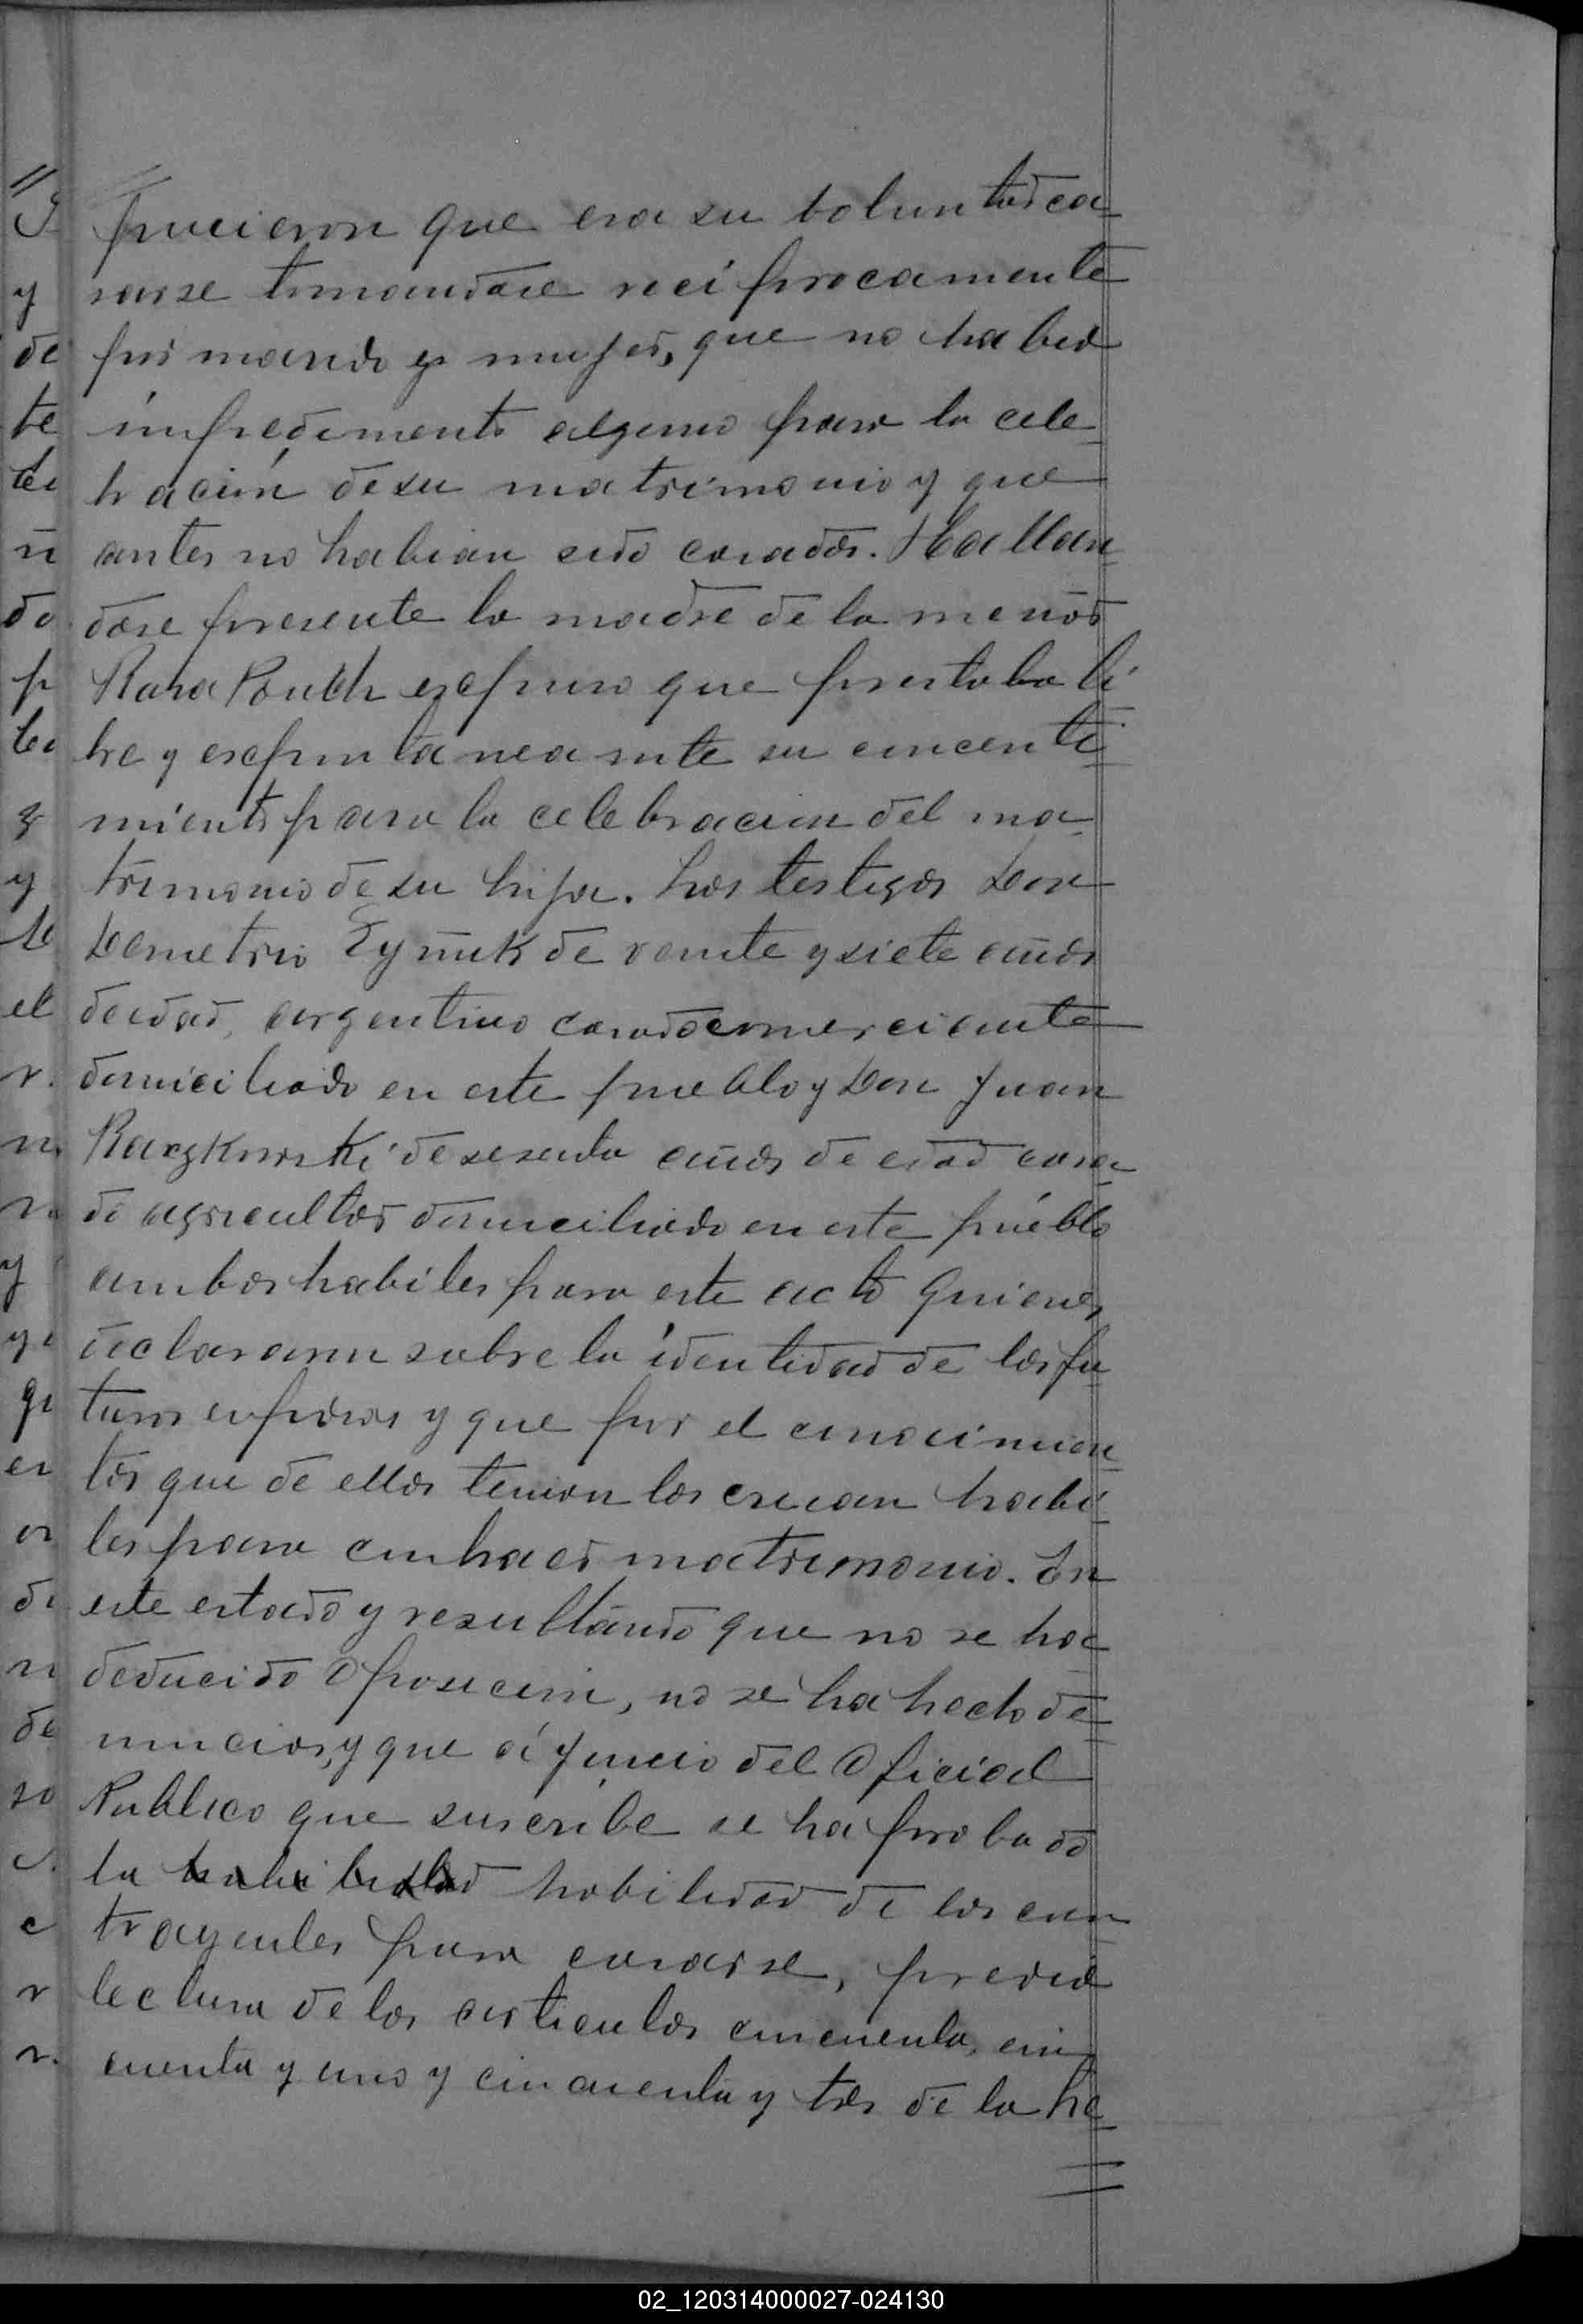 pucieron que era su boluntad ca-
sarse tomandose reciprocamente
por marido y mujer, que no haber
impedimento alguno para la cele-
bración de su matrimonio y que
antes no habian sido casados. Hallan-
dose presente la madre de la menor
Rosa expuso que prestaba li-
bre y espontaneamnte su concenti-
miento para la celebracion del ma-
trimonio de su hija. Los testigos Don
Demetrio de veinte y siete años
de edad, argentino casado comerciante
domiciliado en este pueblo y Don Juan
de sesenta años de edad casa-
do agricultor domiciliado en este pueblo
ambos habiles para este acto quienes
declararon sobre la identidad de los fu-
turos esposos y que por el conocimien-
tos que de ellos tenian los creian habi-
les para contraer matrimonio. En
este estado y resultando que no se ha
deducido oposicion, no se ha hecho de-
nuncias, y que á juicio del Oficial
Publico que suscribe se ha probado
la habilidad de los con-
trayentes para casarse, previa
lectura de los articulos cincuenta, cin-
cuenta y uno y cincuenta y tres de la le-
02_120314000027-024130